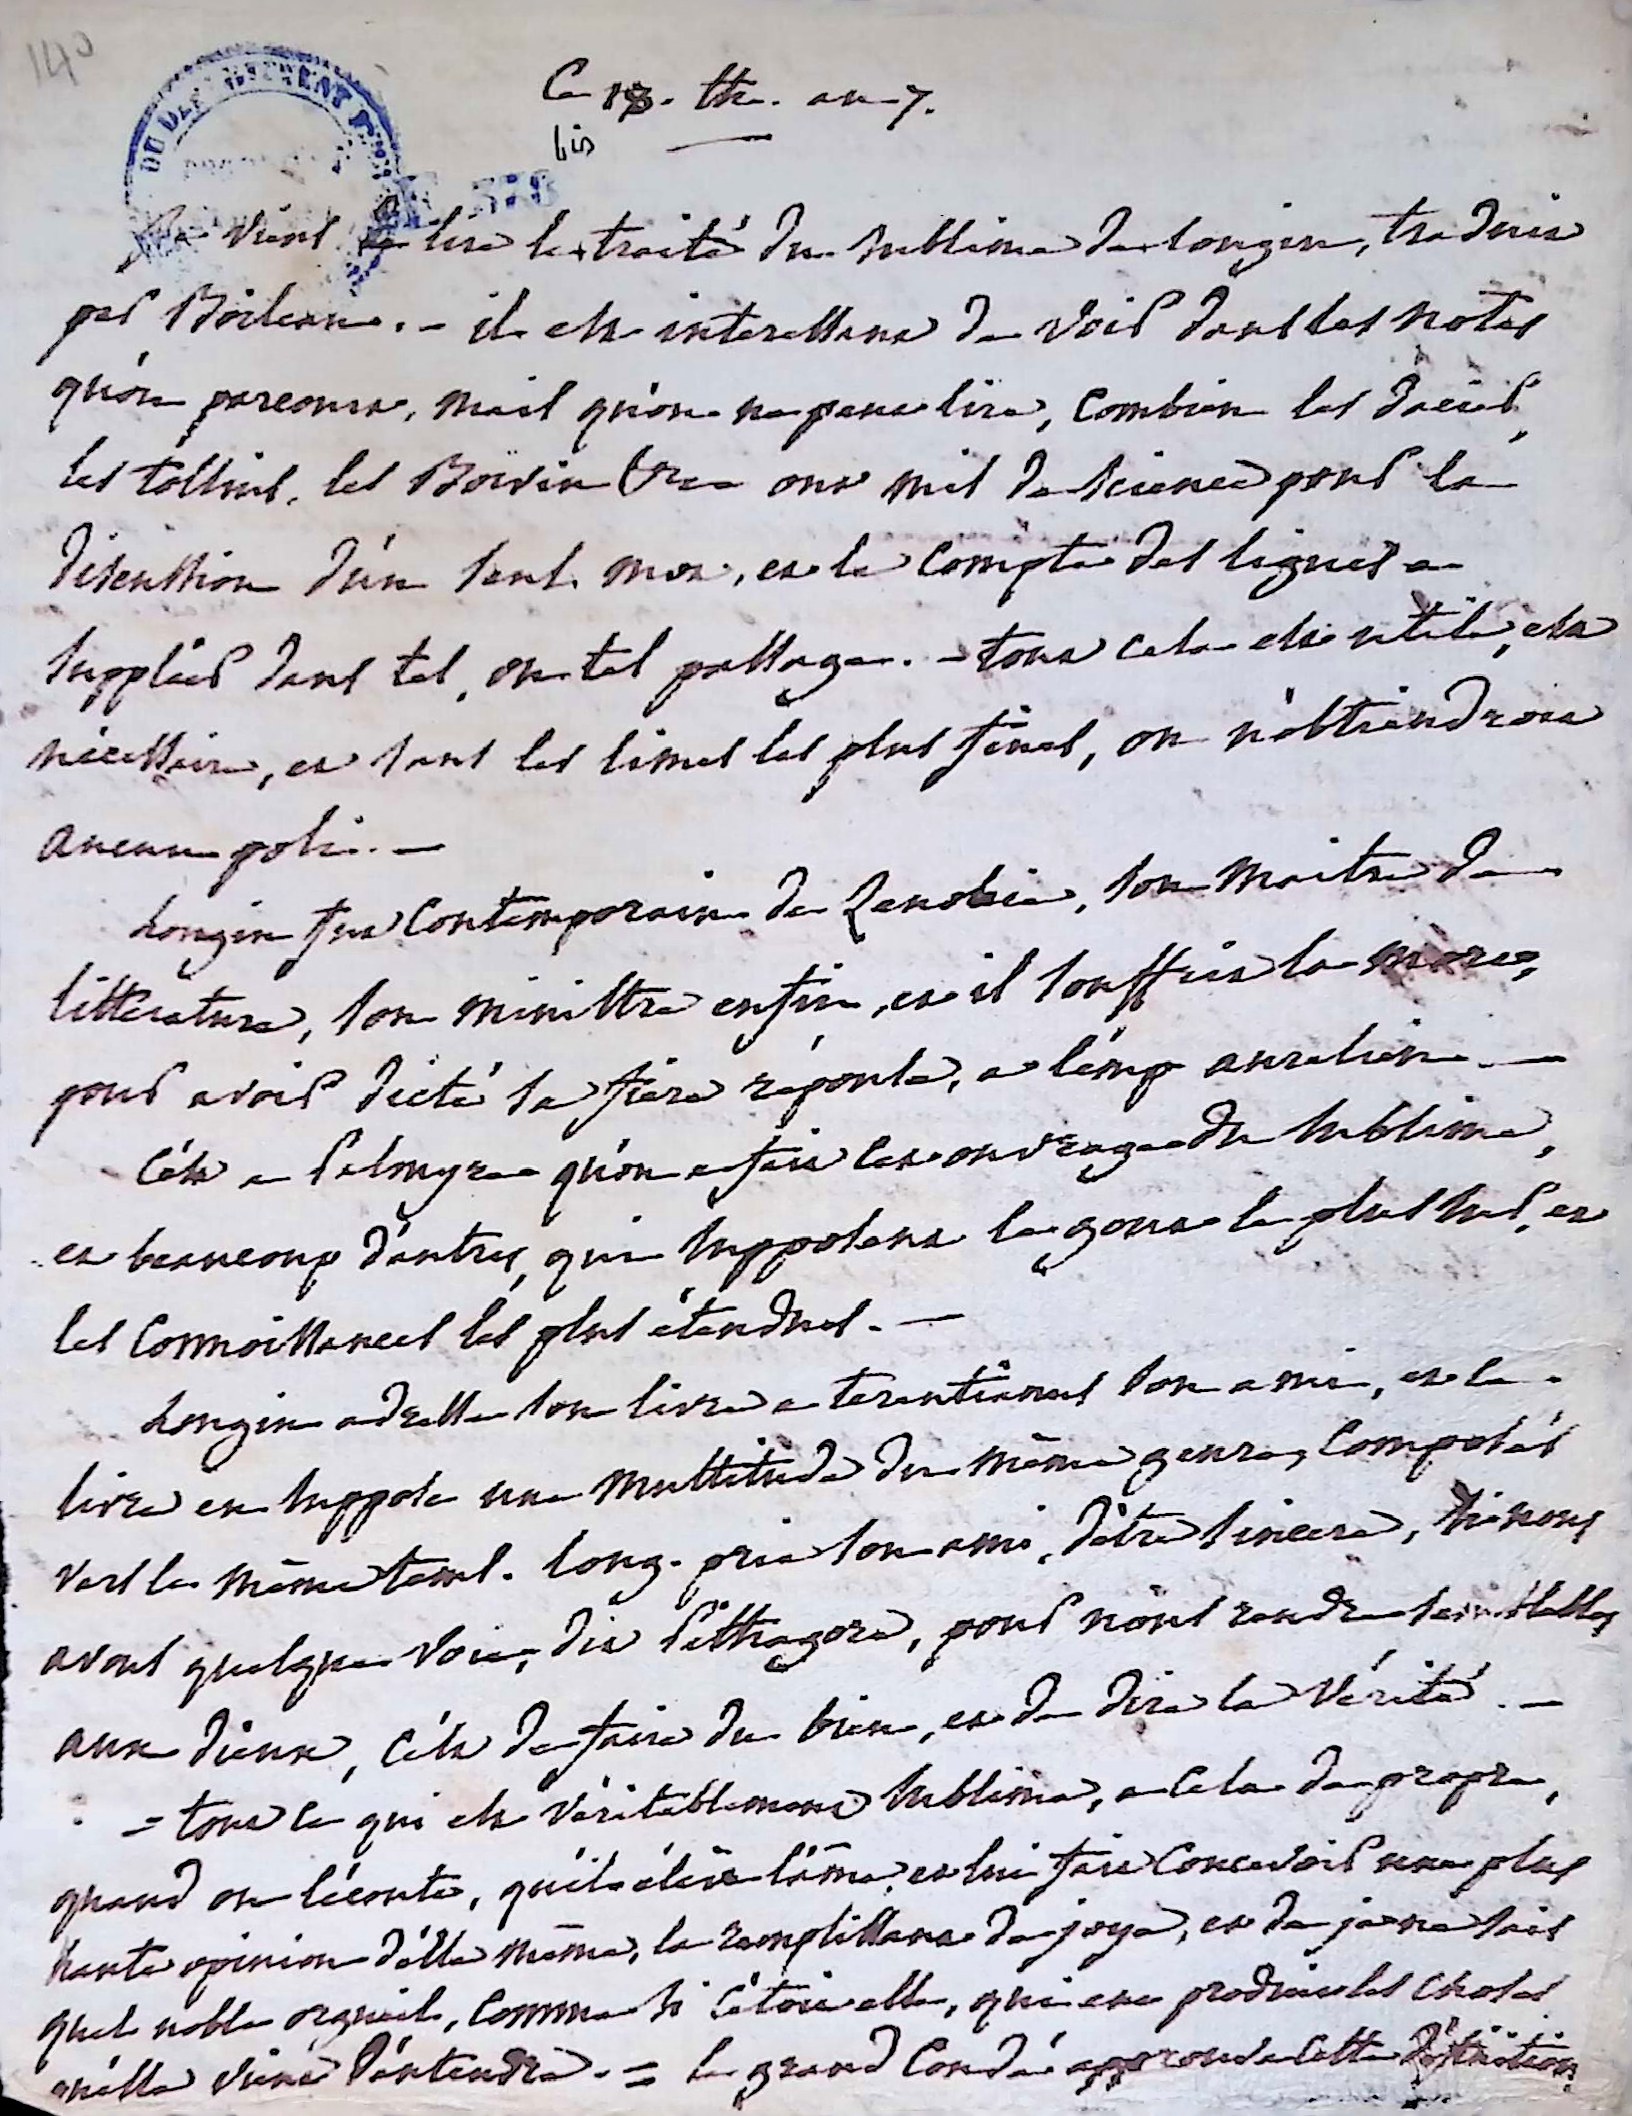 140
DU DEPARTEMENT
Ce 18. th. an 7.
bis
Je viens de lire le traité du Sublime de longin, traduit
par Boileau. - il est interessant de voir dans les notes
qu'on parcourt, mais qu'on ne peut lire, combien les Dacier,
les tollius, les Boivin &c. ont mis de science pour la
discussion d'un seul mot, et le compte des lignes a
suppléer dans tel, ou tel passage. - tout cela est utile, est
nécessaire, et sans les limes les plus fines, on n'obtiendroit
aucun poli. -
Longin fut contemporain de Zenobie, son maitre de
littérature, son ministre enfin, et il souffrit la mort,
pour avoir dicté sa fière réponse, a l'emp aurelien -
C'est a Palmyre qu'on a fait cet ouvrage du Sublime,
et beaucoup d'autres, qui supposent le gout le plus sur, et
les connoissances les plus étendues. -
Longin adresse son livre a terentianus son ami, et le
livre en suppose une multitude du même genre, composés
vers le même tems. long. prie son ami, d'être sincere, si nous
avons quelque voie, dit Pithagore, pour nous rendre semblables
aux dieux, c'est de faire du bien, et de dire la vérité. -
= tout ce qui est véritablement sublime, a cela de propre,
quand on l'écoute, qu'il élève l'âme, et lui fait concevoir une plus
haute opinion d'elle même, la remplissant de joye, et de je ne sais
quel noble orgueil, comme si c'étoit elle, qui eut produit les choses
qu'elle vient d'entendre. = le grand Condé approuva cette définition.